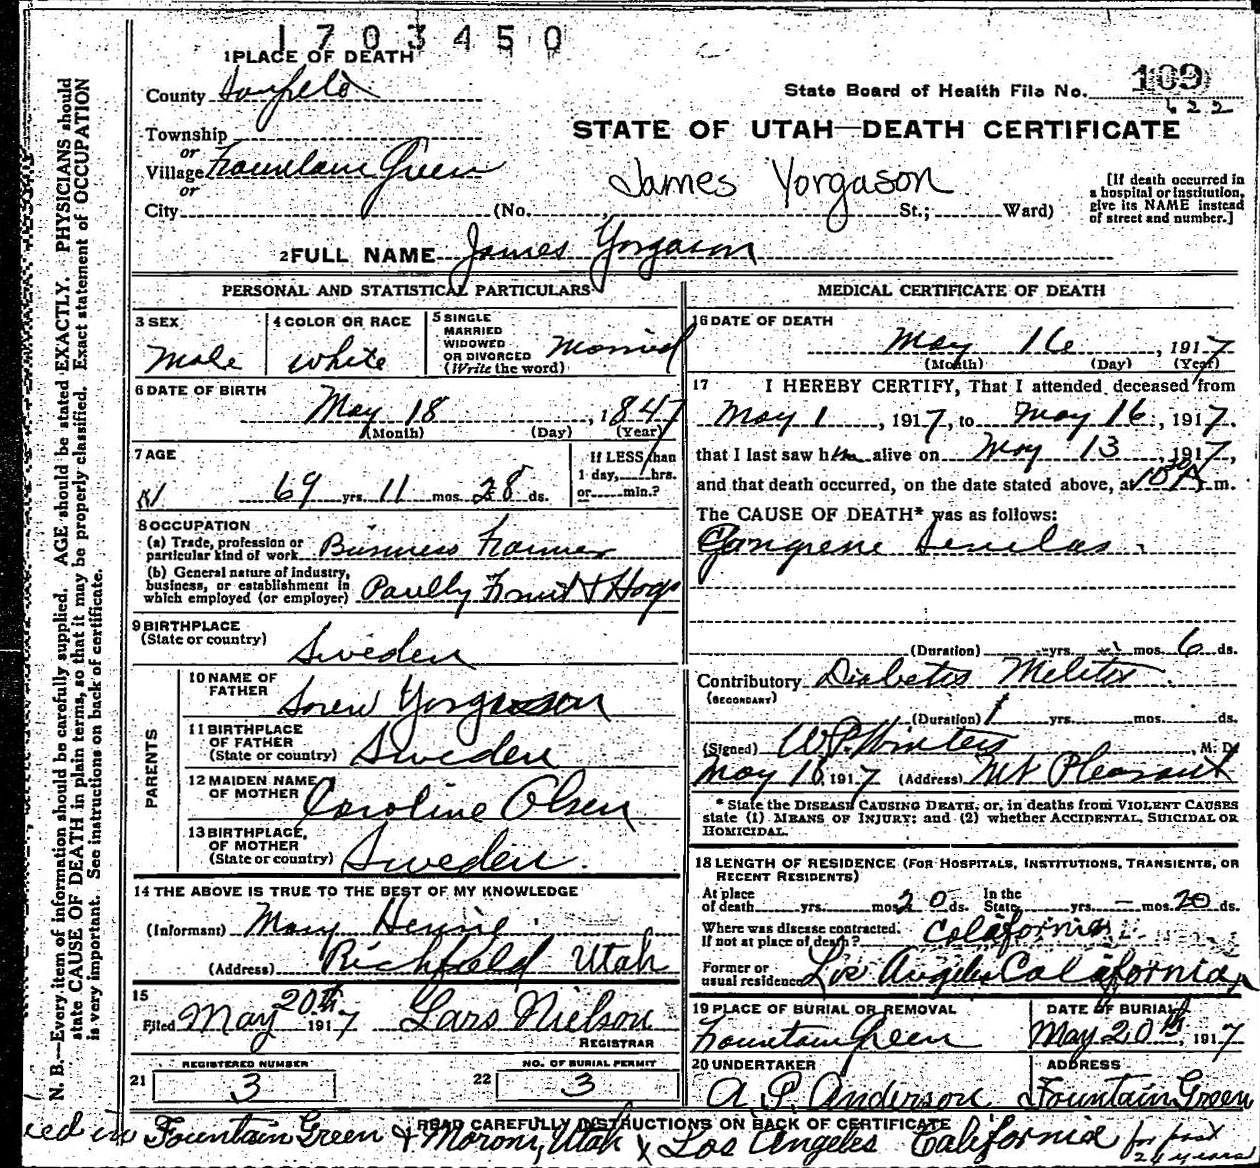 1703450
1 PLACE OF DEATH
County
State Board of Health File No. 109
622
STATE OF UTAH—DEATH CERTIFICATE
Township
or
Village Fountain Green
or
James Yorgason
[If death occurred in
a hospital or institution,
give its NAME instead
of street and number.]
City (No. St.; Ward)
2 FULL NAME James Yorgason
PERSONAL AND STATISTICAL PARTICULARS
3 SEX
Male
4 COLOR OR RACE
White
5 SINGLE
MARRIED
WIDOWED
OR DIVORCED
(Write the word)
Married
6 DATE OF BIRTH
May 18, 1847
(Month) (Day) (Year)
7 AGE
69 yrs. 11 mos. 28 ds.
If LESS than
1 day, hrs.
or min.?
8 OCCUPATION
(a) Trade, profession or
particular kind of work Business Farmer
(b) General nature of industry,
business, or establishment in
which employed (or employer) Fruit & Hogs
9 BIRTHPLACE
(State or country) Sweden
PARENTS
10 NAME OF
FATHER Soren Yorgason
11 BIRTHPLACE
OF FATHER
(State or country) Sweden
12 MAIDEN NAME
OF MOTHER Caroline Olsen
13 BIRTHPLACE,
OF MOTHER
(State or country) Sweden.
14 THE ABOVE IS TRUE TO THE BEST OF MY KNOWLEDGE
(Informant) Mary
(Address) Richfield Utah
15
Filed May 20th 1917 Lars Nielson
REGISTRAR
REGISTERED NUMBER
21 3
NO. OF BURIAL PERMIT
22 3
MEDICAL CERTIFICATE OF DEATH
16 DATE OF DEATH
May 16, 1917
(Month) (Day) (Year)
17 I HEREBY CERTIFY, That I attended deceased from
May 1, 1917, to May 16, 1917.
that I last saw him alive on May 13, 1917,
and that death occurred, on the date stated above, at 10 30 A m.
The CAUSE OF DEATH* was as follows:
Gangrene
(Duration) yrs. mos. 6 ds.
Contributory Diabetes Melitis
(SECONDARY)
(Duration) 1 yrs. mos. ds.
(Signed) W.P. Winters, M. D.
May 16 1917 (Address) Mt Pleasant
* State the DISEASE CAUSING DEATH, or, in deaths from VIOLENT CAUSES
state (1) MEANS OF INJURY; and (2) whether ACCIDENTAL, SUICIDAL OR
HOMICIDAL.
18 LENGTH OF RESIDENCE (FOR HOSPITALS, INSTITUTIONS, TRANSIENTS, OR
RECENT RESIDENTS)
At place
of death yrs. mos. 20 ds. In the
State yrs. — mos. 20 ds.
Where was disease contracted,
If not at place of death? California
Former or
usual residence Los Angeles California
19 PLACE OF BURIAL OR REMOVAL
Fountain Green
DATE OF BURIAL
May 20th, 1917
20 UNDERTAKER
A. P. Anderson
ADDRESS
Fountain Green
READ CAREFULLY INSTRUCTIONS ON BACK OF CERTIFICATE
in Fountain Green & Moroni, Utah & Los Angeles California for past
21 years
N. B.—Every item of information should be carefully supplied. AGE should be stated EXACTLY. PHYSICIANS should
state CAUSE OF DEATH in plain terms, so that it may be properly classified. Exact statement of OCCUPATION
is very important. See instructions on back of certificate.